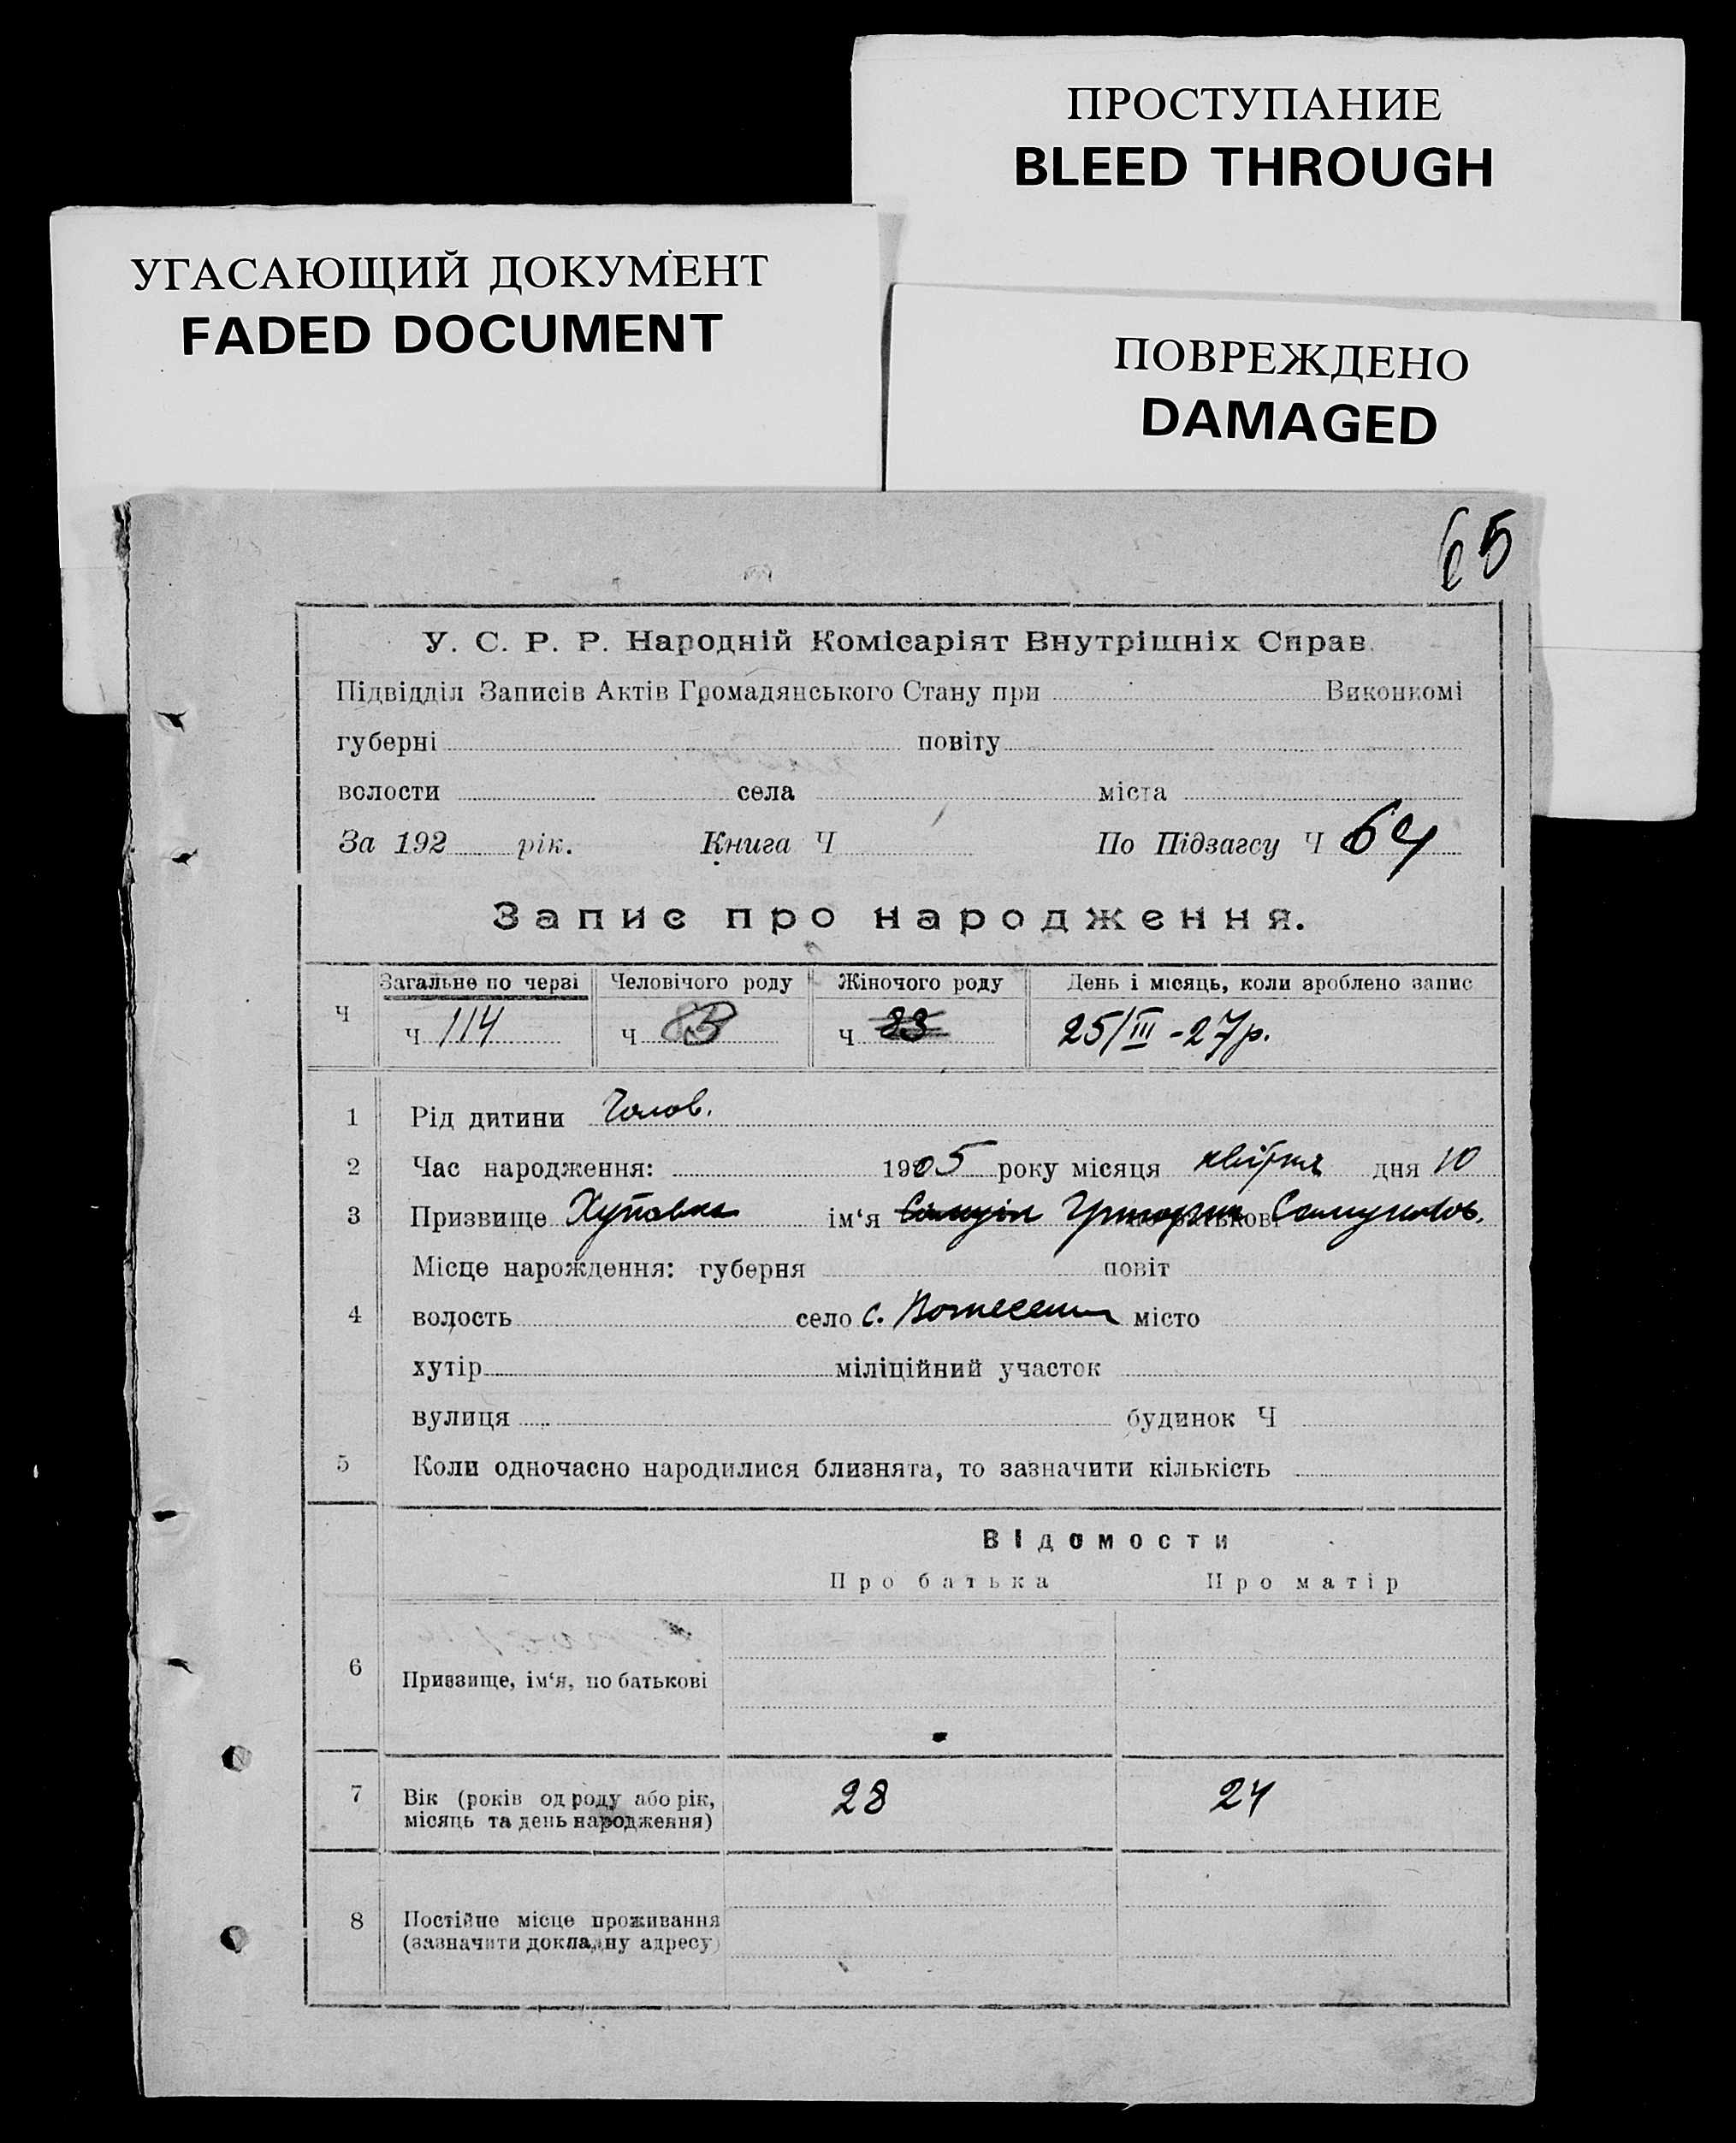 ПРОСТУПАНИЕ
BLEED THROUGH
УГАСАЮЩИЙ ДОКУМЕНТ
FADED DOCUMENT
ПОВРЕЖДЕНО
DAMAGED
65
У. С. Р. Р. Народній Комісаріят Внутрішніх Справ.
Підвідділ Записів Актів Громадянського Стану при Виконкомі
губерні повіту
волости села міста
За 192 рік. Книга Ч По Підзагсу Ч 64
Запис про народження.
Загальне по черзі Человічого роду Жіночого роду День і місяць, коли зроблено запис
Ч Ч 114 Ч 83 Ч 83 25/III-27р.
1 Рід дитини Чолов.
2 Час народження: 1905 року місяця квітня дня 10
3 Призвище ім‘я Самуїл Григорій по батькові Самуилов.
Місце нарождення: губерня повіт
4 волость село с. місто
хутір міліційний участок
вулиця будинок Ч
5 Коли одночасно народилися близнята, то зазначити кількість
Відомости
Про батька Про матір
6 Призвище, ім‘я, по батькові
7 Вік (років од роду або рік, 28 24
місяць та день народження)
8 Постійне місце проживання
(зазначити докладну адресу)